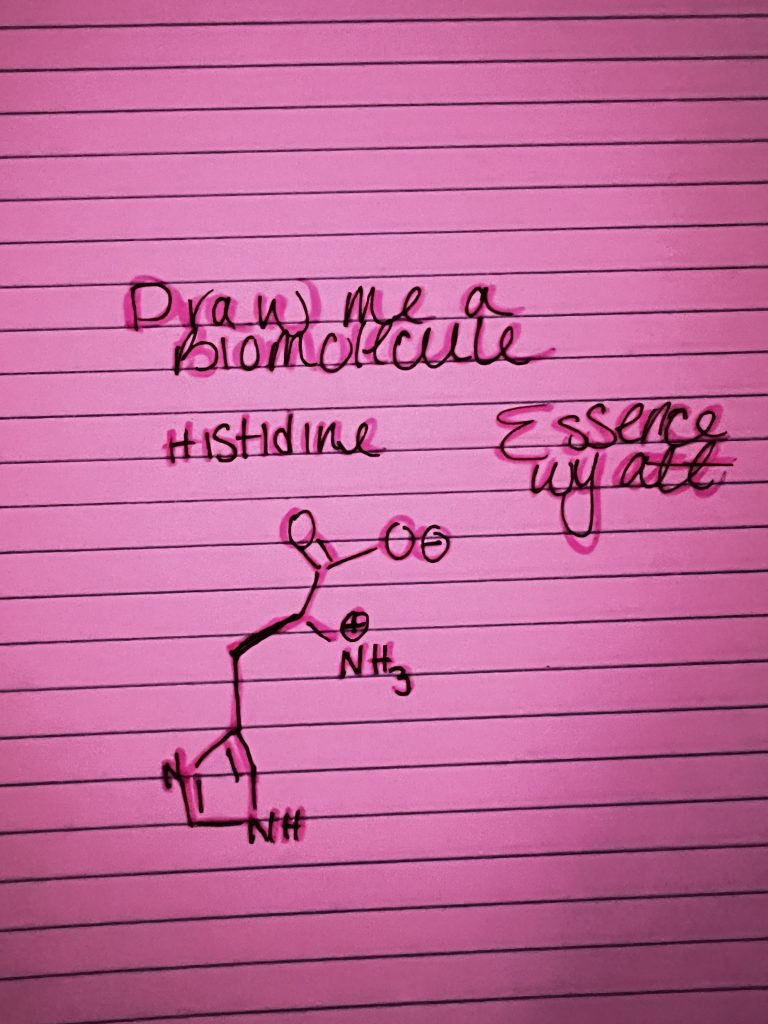 Draw me a
Biomolecule
Histidine
Essence
Wyatt
O
O⊖
⊕
NH3
N
NH